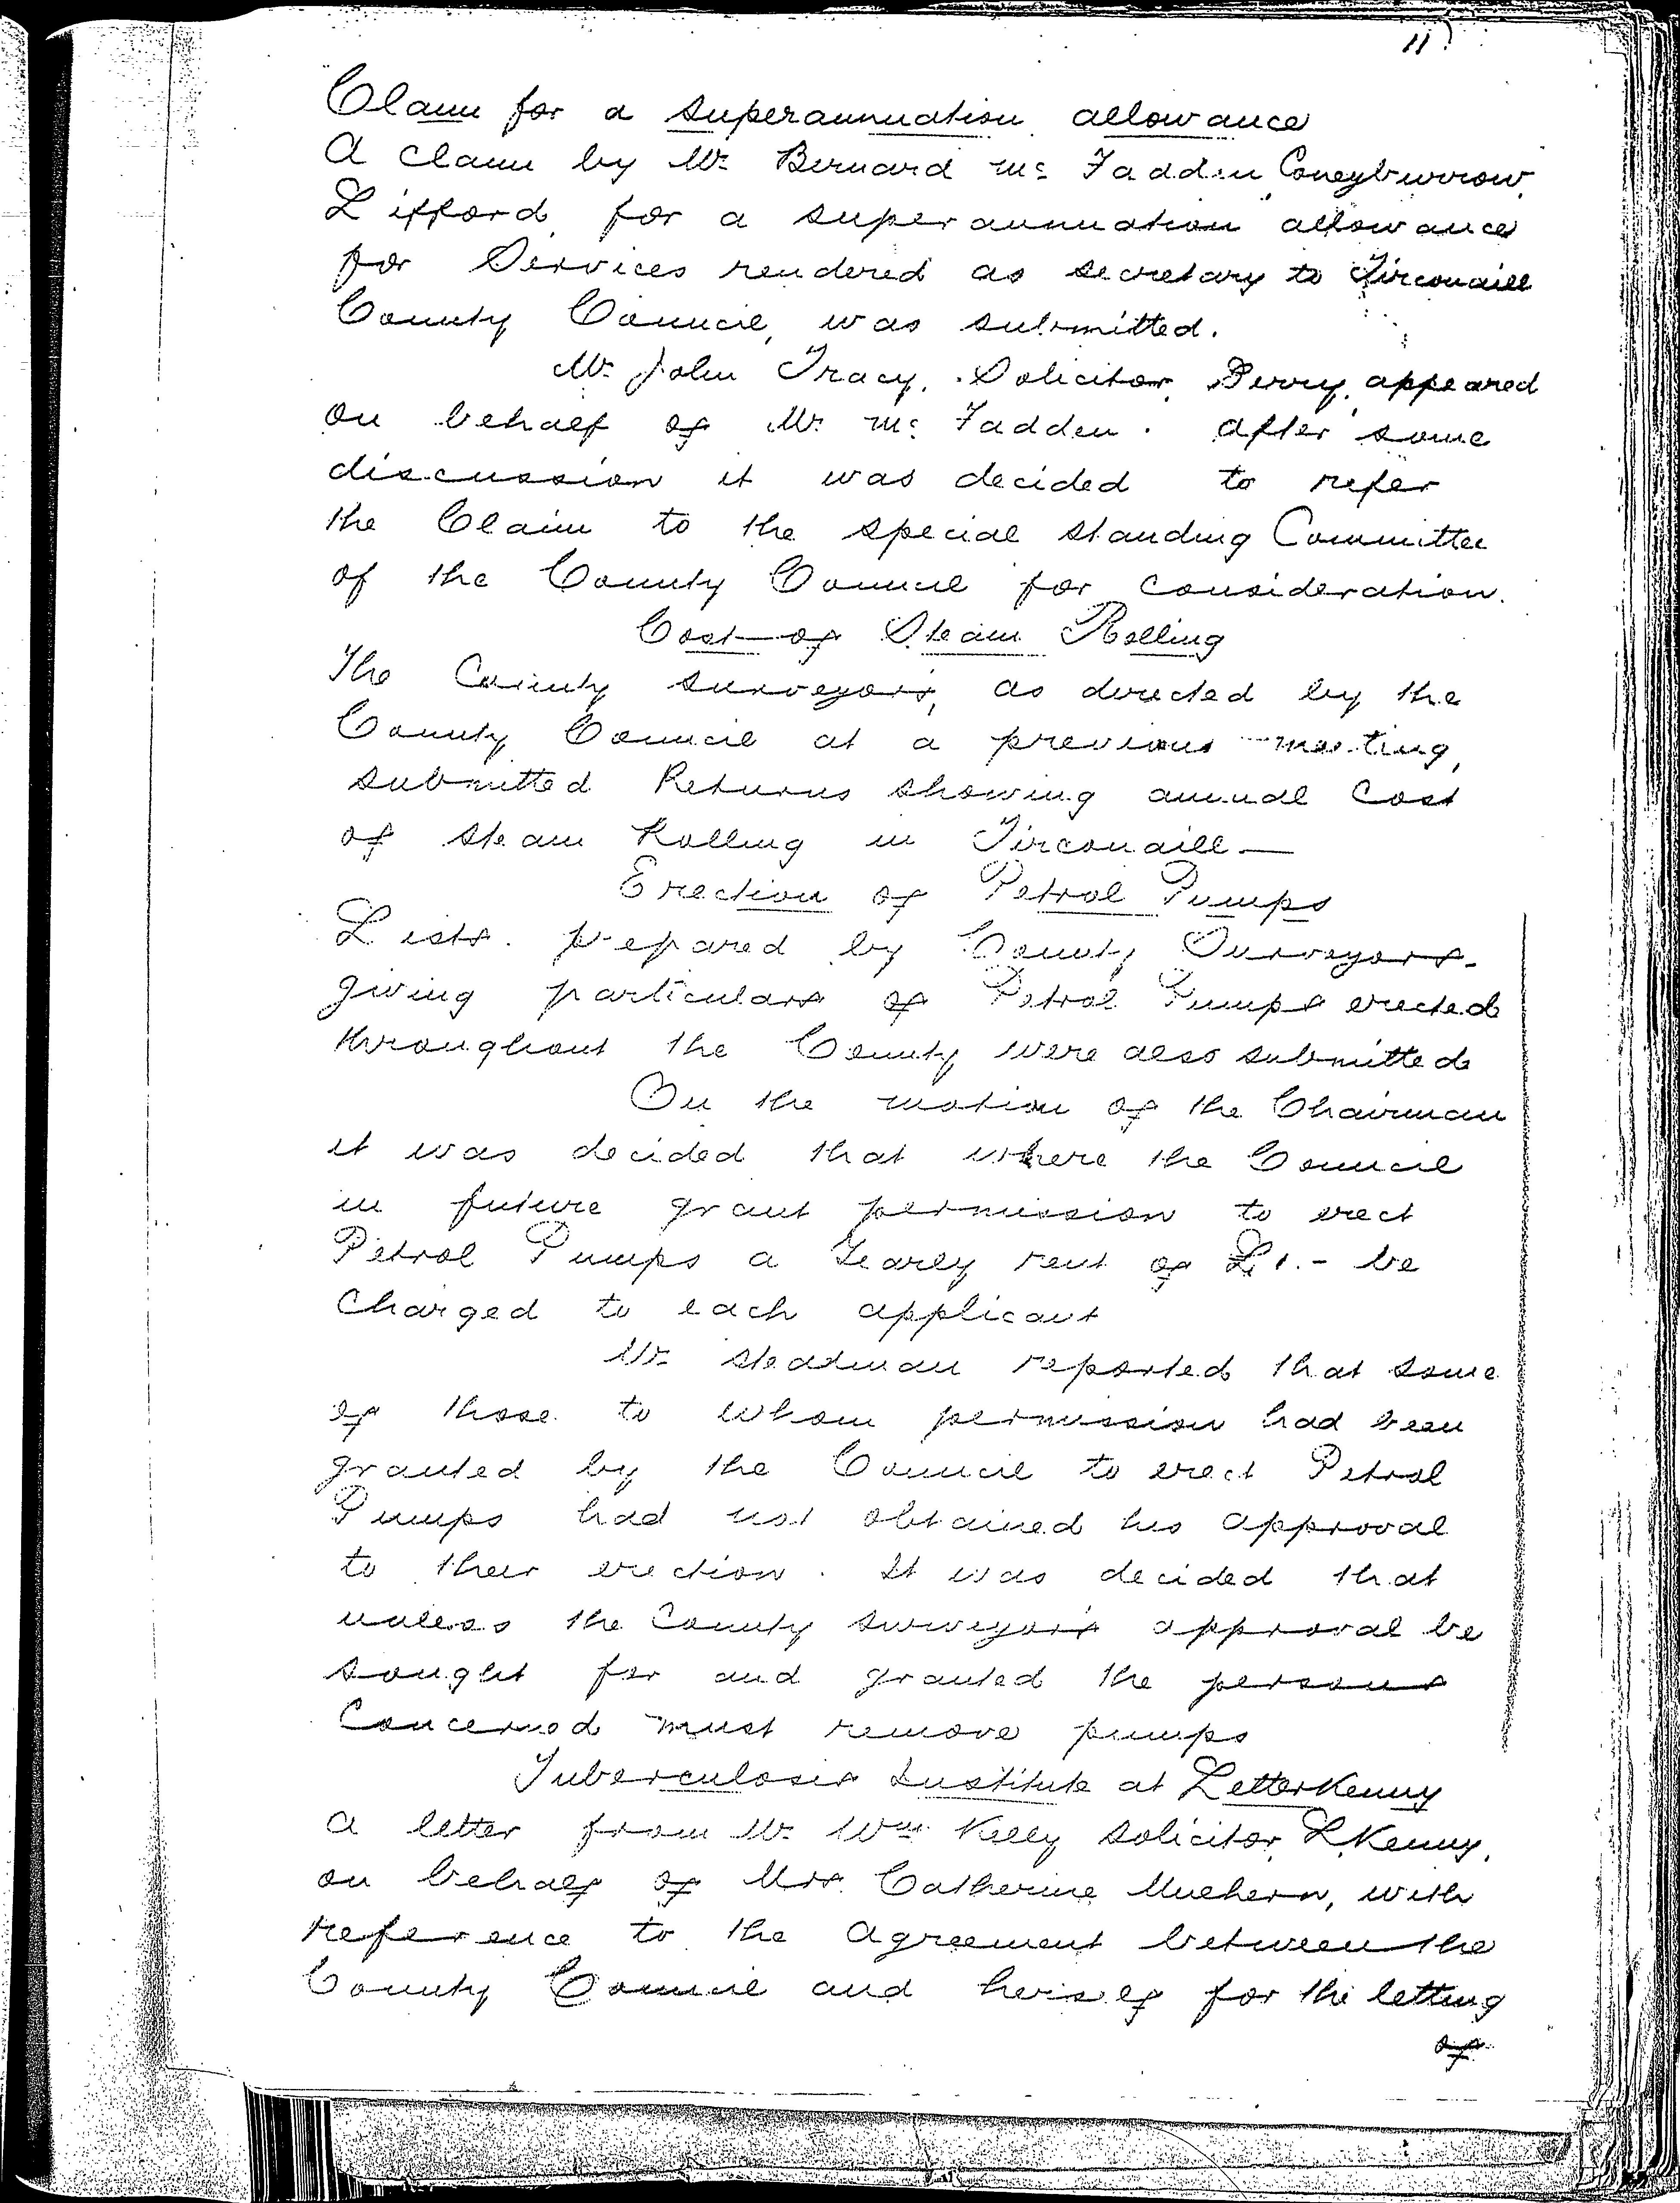 Claim for a superannuation allowance
A claim by Mr Bernard Mc Fadden, Coneyburrow,
Lifford, for a superannuation allowance
for Services rendered as secretary to Tirconaill
County Council, was submitted.
Mr John Tracy, Solicitor, Derry, appeared
on behalf of Mr Mc Fadden. After some
discussion it was decided to refer
the Claim to the special standing Committee
of the County Council for consideration.
Cost of Steam Rolling
The County surveyors, as directed by the
County Council at a previous meeting,
submitted Returns showing annual Cost
of steam Rolling in Tirconaill —
Erection of Petrol Pumps
Lists prepared by County Surveyors
giving particulars of Petrol Pumps erected
throughout the County were also submitted
On the motion of the Chairman
it was decided that where the Council
in future grant permission to erect
Petrol Pumps a Yearly rent of £1.- be
Charged to each applicant
Mr Steadman reported that some
of those to whom permission had been
granted by the Council to erect Petrol
Pumps had not obtained his approval
to their erection. It was decided that
unless the County surveyor's approval be
sought for and granted the persons
Concerned must remove pumps
Tuberculosis Institute at Letterkenny
A letter from Mr Wm Kelly solicitor, L,Kenny,
on behalf of Mrs Catherine Mulhern, with
reference to the agreement between the
County Council and herself for the letting
of